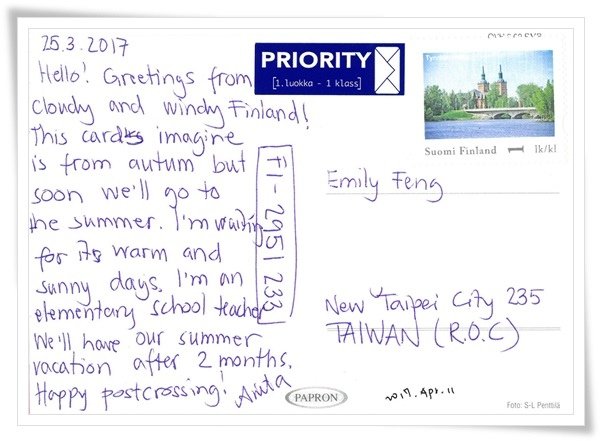 25.3.2017
Hello! Greetings from
cloudy and windy Finland!
This cards imagine
is from autum but
soon we'll go to
the summer. I'm waiting
for its warm and
sunny days. I'm an
elementary school teacher
We'll have our summer
vacation after 2 months.
Happy postcrossing!
FI-2951233
PRIORITY
[1.luokka - 1 klass]
Suomi Finland 1 lk/kl
Emily Feng
New Taipei City 235
TAIWAN (R.O.C)
PAPRON
2017.Apr.11
Foto: S-L Penttilä